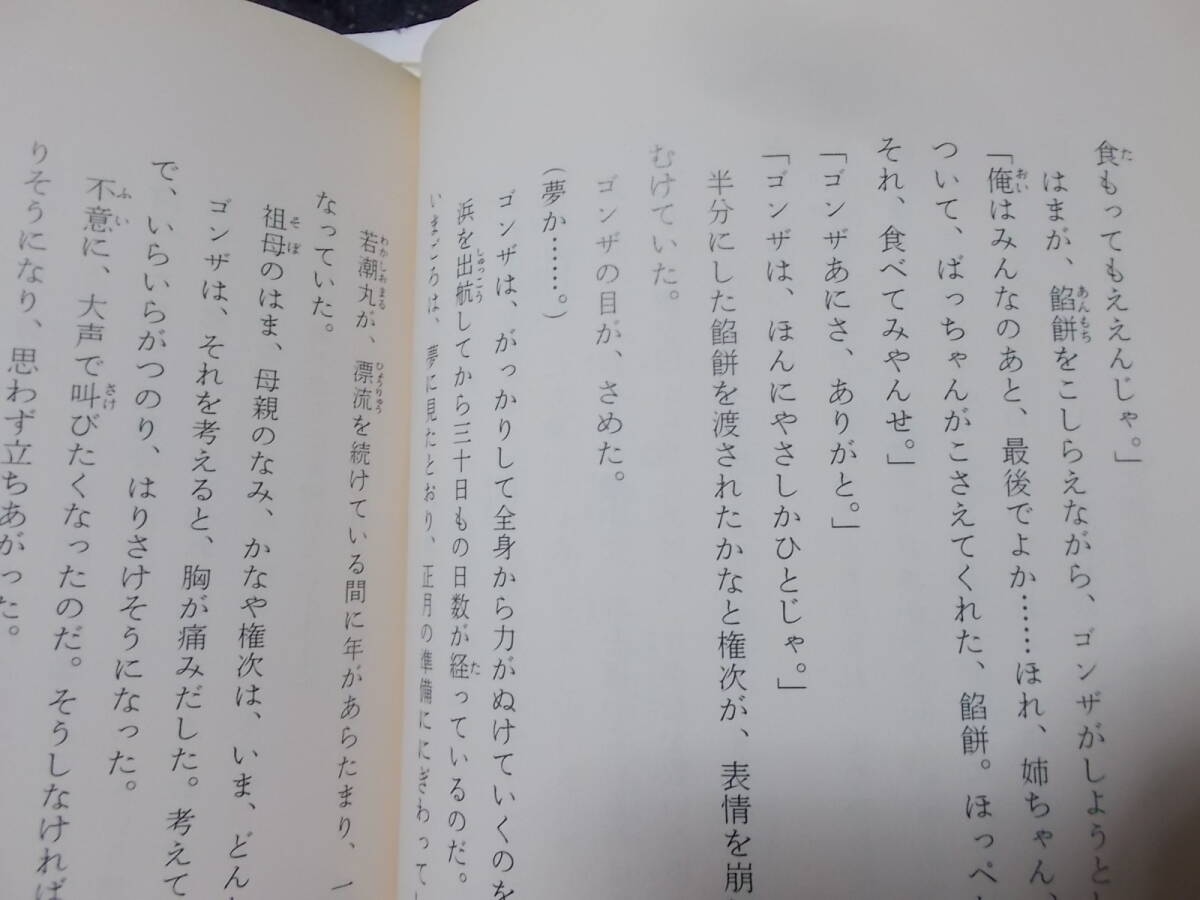 食もってもええんじゃ。」
はまが、餡餅をこしらえながら、ゴンザがしようと
「俺はみんなのあと、最後でよか……ほれ、姉ちゃん、
ついて、ばっちゃんがこさえてくれた、餡餅。ほっぺ
それ、食べてみやんせ。」
「ゴンザあにさ、ありがと。」
「ゴンザは、ほんにやさしかひとじゃ。」
半分にした餡餅を渡されたかなと権次が、表情を崩
むけていた。
ゴンザの目が、さめた。
（夢か……。）
ゴンザは、がっかりして全身から力がぬけていくのを
浜を出航してから三十日もの日数が経っているのだ。
いまごろは、夢に見たとおり、正月の準備ににぎわって
若潮丸が、漂流を続けている間に年があらたまり、一
なっていた。
祖母のはま、母親のなみ、かなや権次は、いま、どん
ゴンザは、それを考えると、胸が痛みだした。考えて
で、いらいらがつのり、はりさけそうになった。
不意に、大声で叫びたくなったのだ。そうしなければ
りそうになり、思わず立ちあがった。